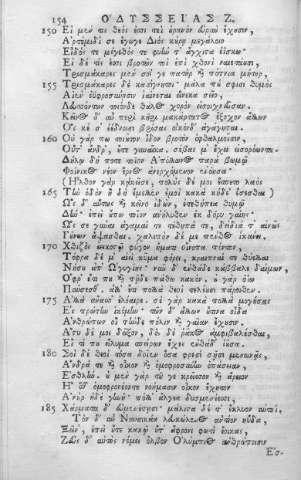 154 ΟΔΥΣΣΕΙΑΣ Ζ.
150 Εἰ μέν τις θεός ἐσσι τοὶ ἐρανὸν εὐρὺν ἔχουσιν,
Ἀρτέμιδί σε ἔγωγε Διὸς κούρῃ μεγάλοιο
Εἶδός τε μέγεθός τε φυήν τ' ἄγχιστα ἐΐσκω·
Εἰ δέ τίς ἐσσι βροτῶν τοὶ ἐπὶ χθονὶ ναιετάουσι,
Τρισμάκαρες μὲν σοί γε πατὴρ καὶ πότνια μήτηρ,
155 Τρισμάκαρες δὲ κασίγνητοι· μάλα πού σφισι θυμὸς
Αἰὲν ἐυφροσύνῃσιν ἰαίνεται εἵνεκα σεῖο,
Λευσσόντων τοιόνδε θάλος χορὸν εἰσοιχνεῦσαν.
Κεῖνος δ' αὖ περὶ κῆρι μακάρτατος ἔξοχον ἄλλων
Ὅς κέ σ' ἐέδνοισι βρίσας οἶκόνδ' ἀγάγηται.
160 Οὐ γάρ πω τοῖον ἴδον βροτὸν ὀφθαλμοῖσιν
Οὔτ' ἄνδρ', οὔτε γυναῖκα· σέβας μ' ἔχει εἰσορόωντα.
Δήλῳ δή ποτε τοῖον Ἀπόλλωνος παρὰ βωμῷ
Φοίνικος νέον ἔρνος ἀνερχόμενον ἐνόησα·
(Ἦλθον γὰρ καὶ κεῖσε, πολὺς δέ μοι ἕσπετο λαὸς
165 Τὴν ὁδὸν ᾗ δὴ ἔμελλεν ἐμοὶ κακὰ κήδε' ἔσεσθαι)
Ὣς δ' αὔτως καὶ κεῖνο ἰδὼν, ἐτεθήπεα θυμῷ
Δὴν· ἐπεὶ οὔπω τοῖον ἀνήλυθεν ἐκ δόρυ γαίης·
Ὡς σὲ γύναι ἄγαμαί τε τέθηπά τε, δείδιά τ' αἰνῶς
Γούνων ἅψασθαι· χαλεπὸν δέ με πένθος ἱκάνει.
170 Χθιζὸς ἐεικοστῷ φύγον ἤματι οἴνοπα πόντον,
Τόφρα δέ μ' αἰεὶ κῦμα φόρει, κραιπναί τε θύελλαι
Νήσου ἀπ' Ὠγυγίης· νῦν δ' ἐνθάδε κάββαλε δαίμων,
Ὄφρ' ἔτι που καὶ τῇδε πάθω κακόν. οὐ γὰρ ὀΐω
Παύσεσθ', ἀλλ' ἔτι πολλὰ θεοὶ τελέουσι πάροιθεν.
175 Ἀλλὰ ἄνασσ' ἐλέαιρε. σὲ γὰρ κακὰ πολλὰ μογήσας
Ἐς πρώτην ἱκόμην· τῶν δ' ἄλλων οὔτινα οἶδα
Ἀνθρώπων οἳ τήνδε πόλιν καὶ γαῖαν ἔχουσιν.
Ἄστυ δέ μοι δεῖξον, δὸς δὲ ῥάκος ἀμφιβαλέσθαι,
Εἴ τί που εἴλυμα σπείρων ἔχες ἐνθάδ' ἰοῦσα.
180 Σοὶ δὲ θεοὶ τόσα δοῖεν ὅσα φρεσὶ σῇσι μενοινᾷς,
Ἄνδρα τε καὶ οἶκον καὶ ὁμοφροσύνην ὀπάσειαν
Ἐσθλήν. οὐ μὲν γὰρ τοῦ γε κρεῖσσον καὶ ἄρειον
Ἢ ὅθ' ὁμοφρονέοντε νοήμασιν οἶκον ἔχητον
Ἀνὴρ ἠδὲ γυνὴ· πόλλ' ἄλγεα δυσμενέεσσι,
185 Χάρματα δ' εὐμενέτῃσι· μάλιστα δέ τ' ἔκλυον αὐτοί,
Τὸν δ' αὖ Ναυσικάα λευκώλενος ἀντίον ηὔδα,
Ξεῖν', ἐπεὶ οὔτε κακῷ οὔτ' ἄφρονι φωτὶ ἔοικας,
Ζεὺς δ' αὐτὸς νέμει ὄλβον Ὀλύμπιος ἀνθρώποισιν
Ἐσ-